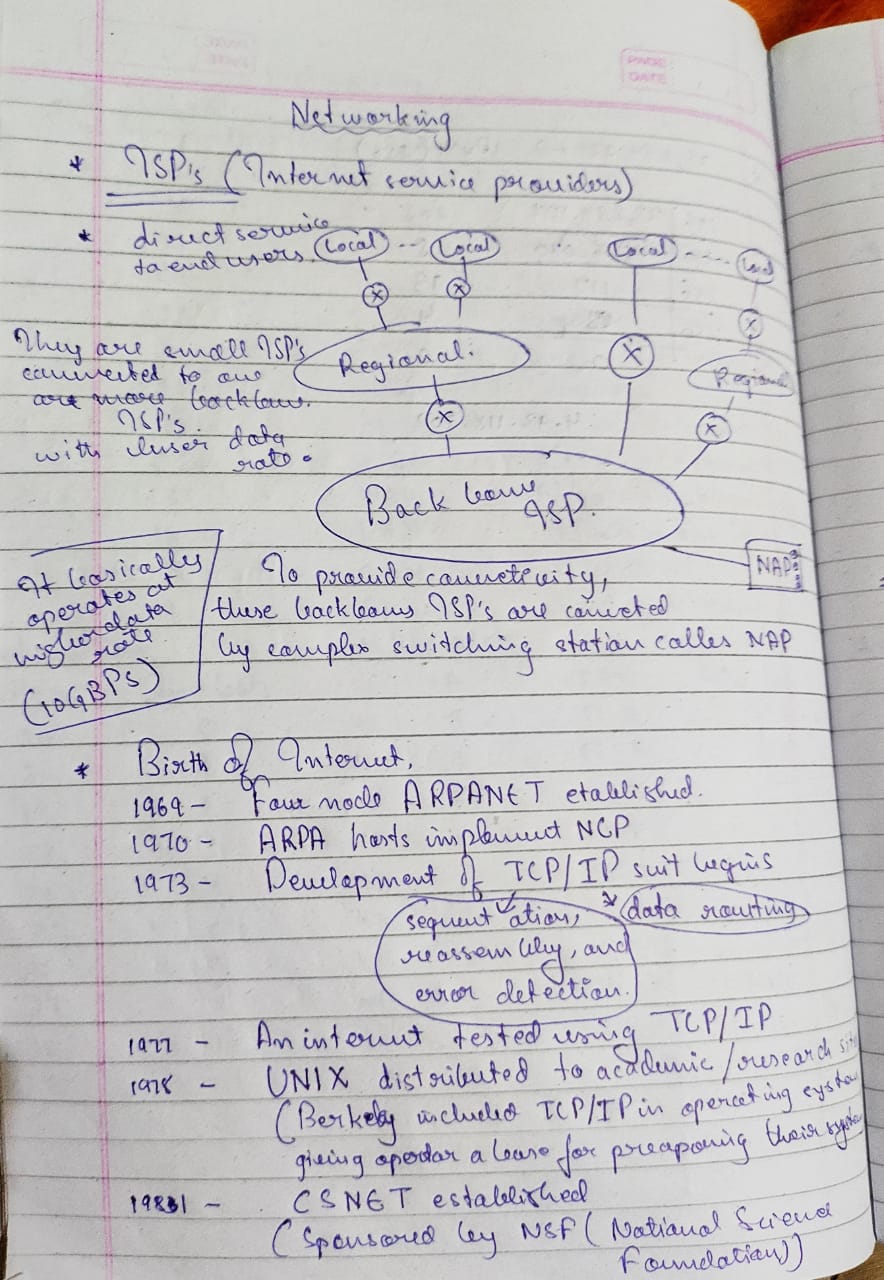 PAGE
DATE
Networking
* ISP's (Internet service providers)
* direct service
to end users
Local -- Local
Local ---- Local
They are small ISP's
connected to one
are more backbone
ISP's
with luser data
rate.
Regional.
Regional
Back bone
ISP.
NAP
It basically
operates at
higher data
rate
(10GBPS)
To provide connectivity,
these backbons ISP's are connected
by complex switching station calles NAP
* Birth of Internet,
1969 - Four node ARPANET etablished.
1970 - ARPA hosts implement NCP
1973 - Development of TCP/IP suit begins
sequent ation,
reassembly, and
error detection.
data routting
1977 - An internet tested using TCP/IP
1978 - UNIX distributed to academic/research
(Berkely included TCP/IP in operating system
giving a base for their
1981 - CSNET established
(Sponsored by NSF (National Science
Foundation))